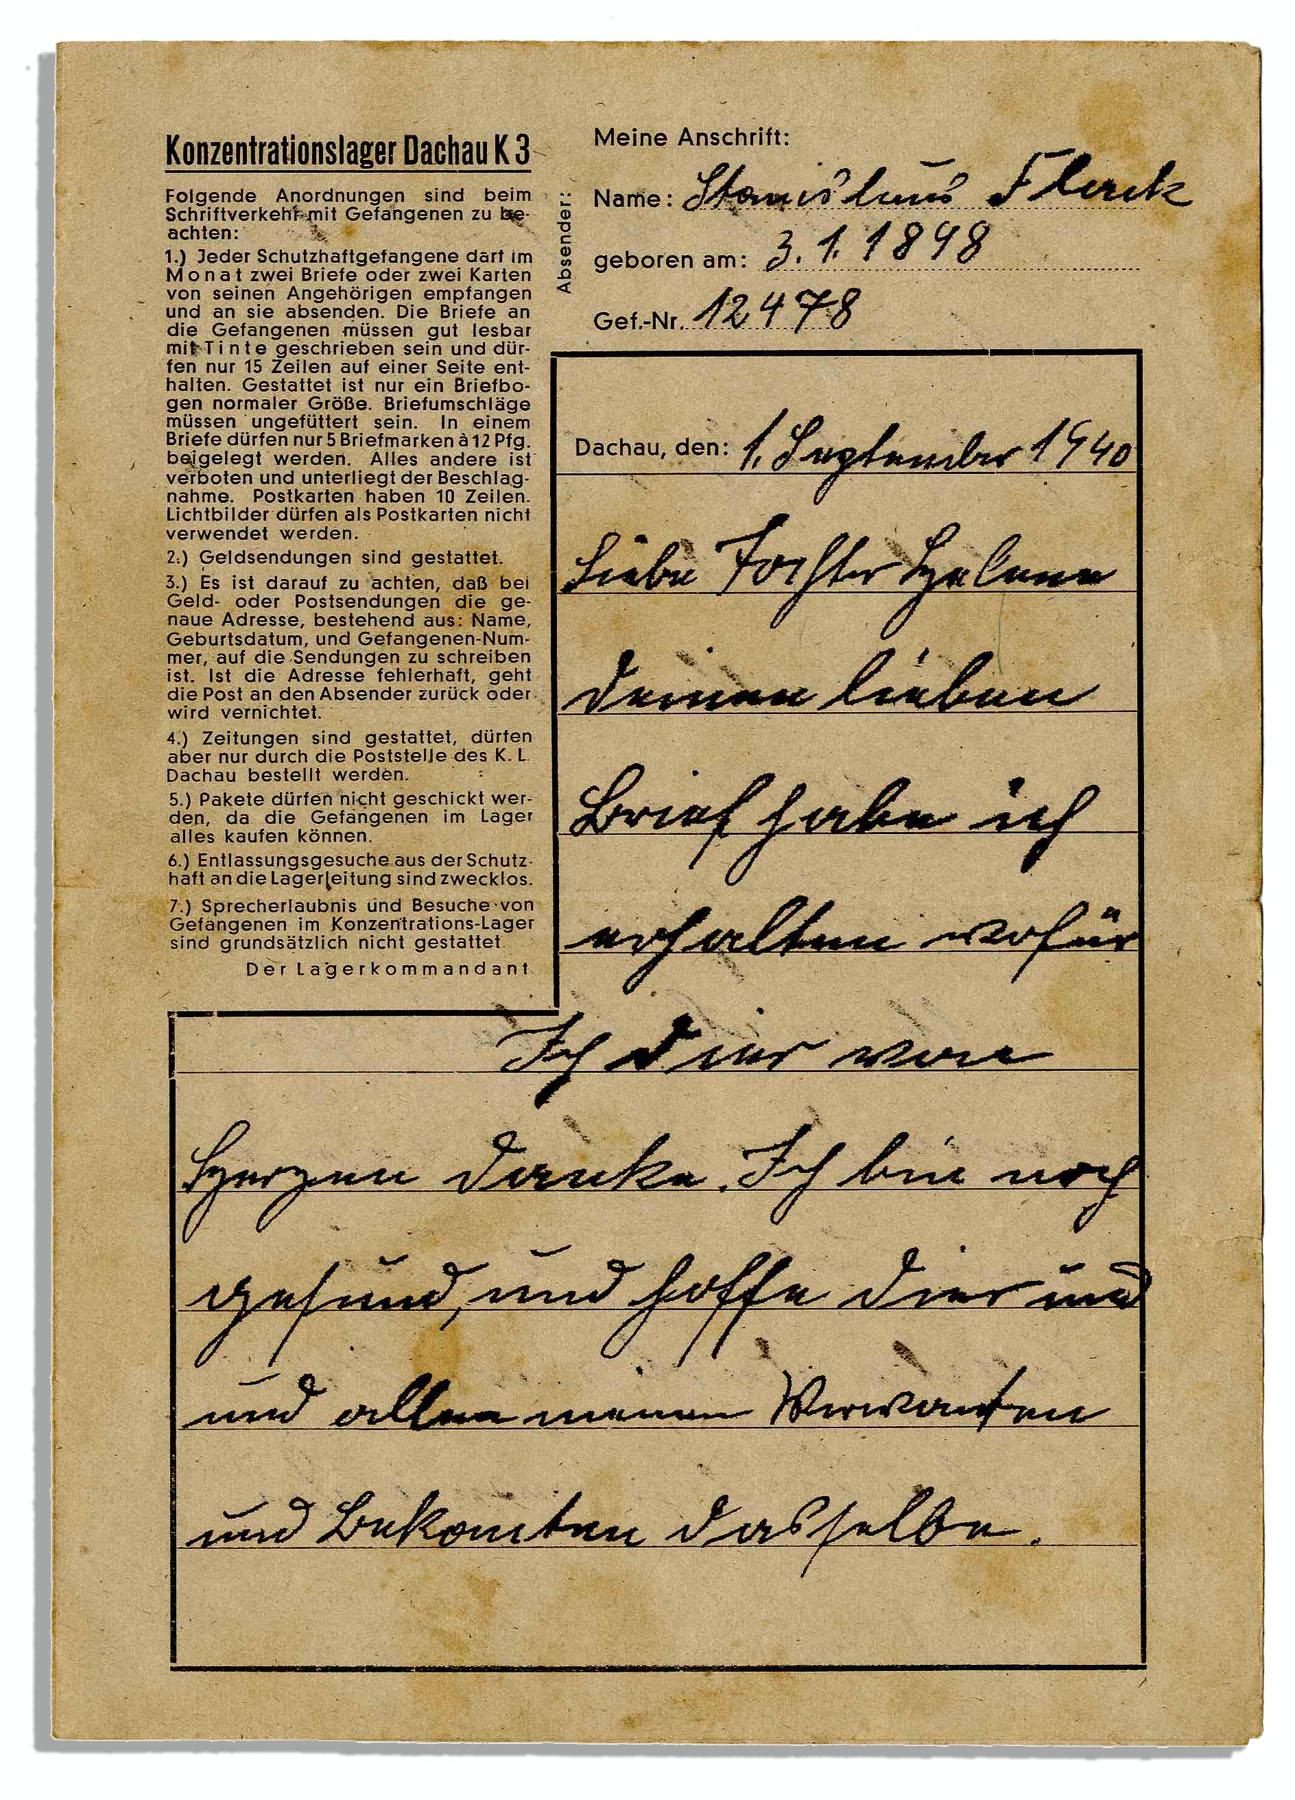 Konzentrationslager Dachau K 3
Folgende Anordnungen sind beim
Schriftverkehr mit Gefangenen zu be-
achten:
1.) Jeder Schutzhaftgefangene darf im
Monat zwei Briefe oder zwei Karten
von seinen Angehörigen empfangen
und an sie absenden. Die Briefe an
die Gefangenen müssen gut lesbar
mit Tinte geschrieben sein und dür-
fen nur 15 Zeilen auf einer Seite ent-
halten. Gestattet ist nur ein Briefbo-
gen normaler Größe. Briefumschläge
müssen ungefüttert sein. In einem
Briefe dürfen nur 5 Briefmarken à 12 Pfg.
beigelegt werden. Alles andere ist
verboten und unterliegt der Beschlag-
nahme. Postkarten haben 10 Zeilen.
Lichtbilder dürfen als Postkarten nicht
verwendet werden.
2.) Geldsendungen sind gestattet.
3.) Es ist darauf zu achten, daß bei
Geld- oder Postsendungen die ge-
naue Adresse, bestehend aus: Name,
Geburtsdatum, und Gefangenen-Num-
mer, auf die Sendungen zu schreiben
ist. Ist die Adresse fehlerhaft, geht
die Post an den Absender zurück oder
wird vernichtet.
4.) Zeitungen sind gestattet, dürfen
aber nur durch die Poststelle des K. L.
Dachau bestellt werden.
5.) Pakete dürfen nicht geschickt wer-
den, da die Gefangenen im Lager
alles kaufen können.
6.) Entlassungsgesuche aus der Schutz-
haft an die Lagerleitung sind zwecklos.
7.) Sprecherlaubnis und Besuche von
Gefangenen im Konzentrations-Lager
sind grundsätzlich nicht gestattet.
Der Lagerkommandant
Absender:
Meine Anschrift:
Name: Stanislaus
geboren am: 3. 1. 1898
Gef.-Nr. 12478
Dachau, den: 1. September 1940
Liebe Tochter Helene
Deinen lieben
Brief habe ich
erhalten wofür
Ich Dier von
Herzen danke. Ich bin noch
gesund, und hoffe Dier und
und allen meinen Verwanten
und Bekanten dasselbe.